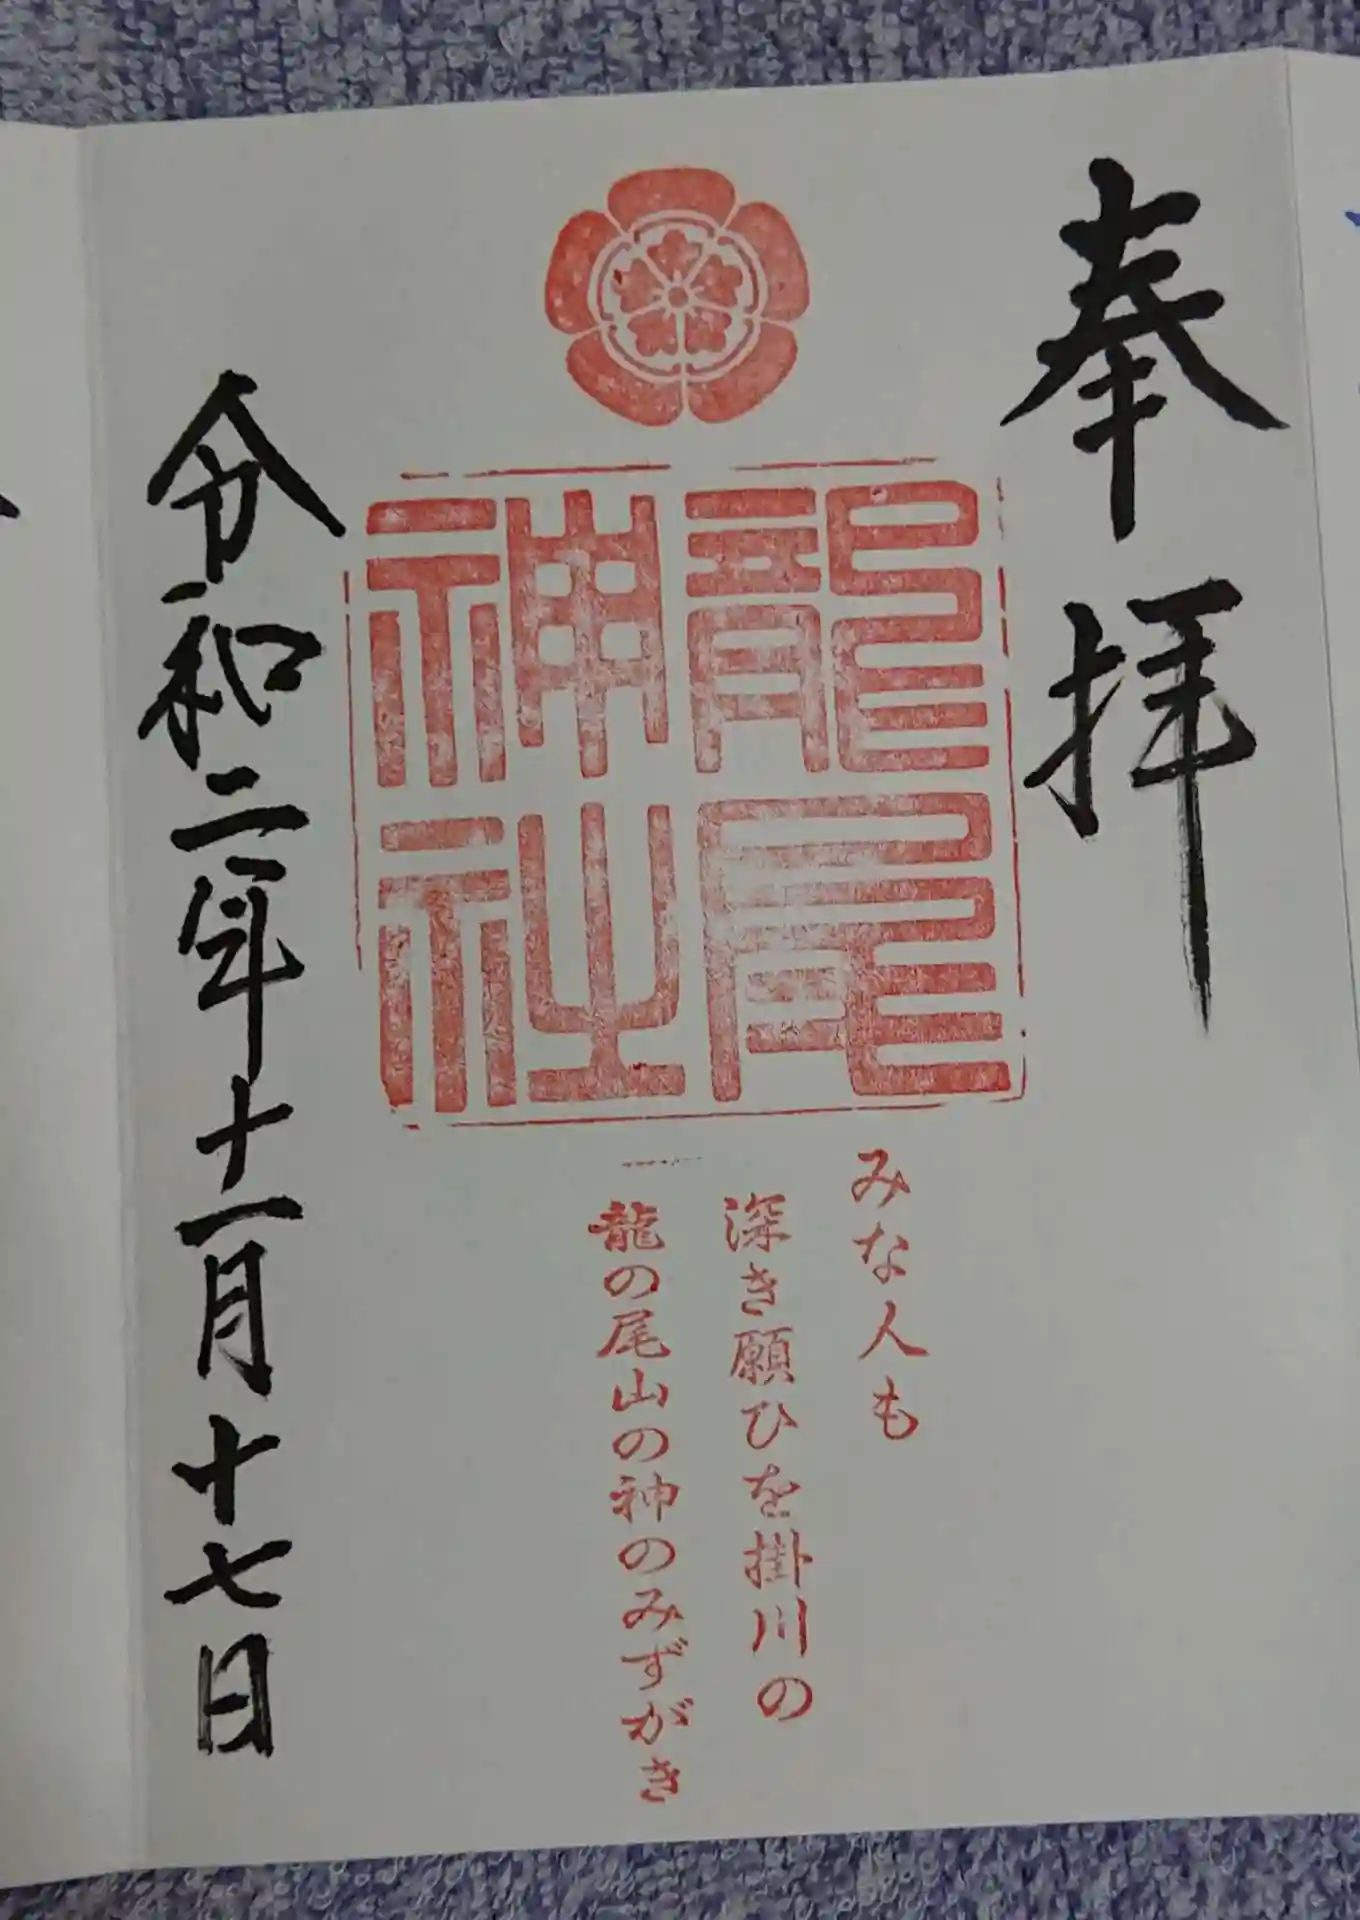 奉拝
龍尾
神社
みな人も
深き願ひを掛川の
龍の尾山の神のみずがき
令和二年十一月十七日